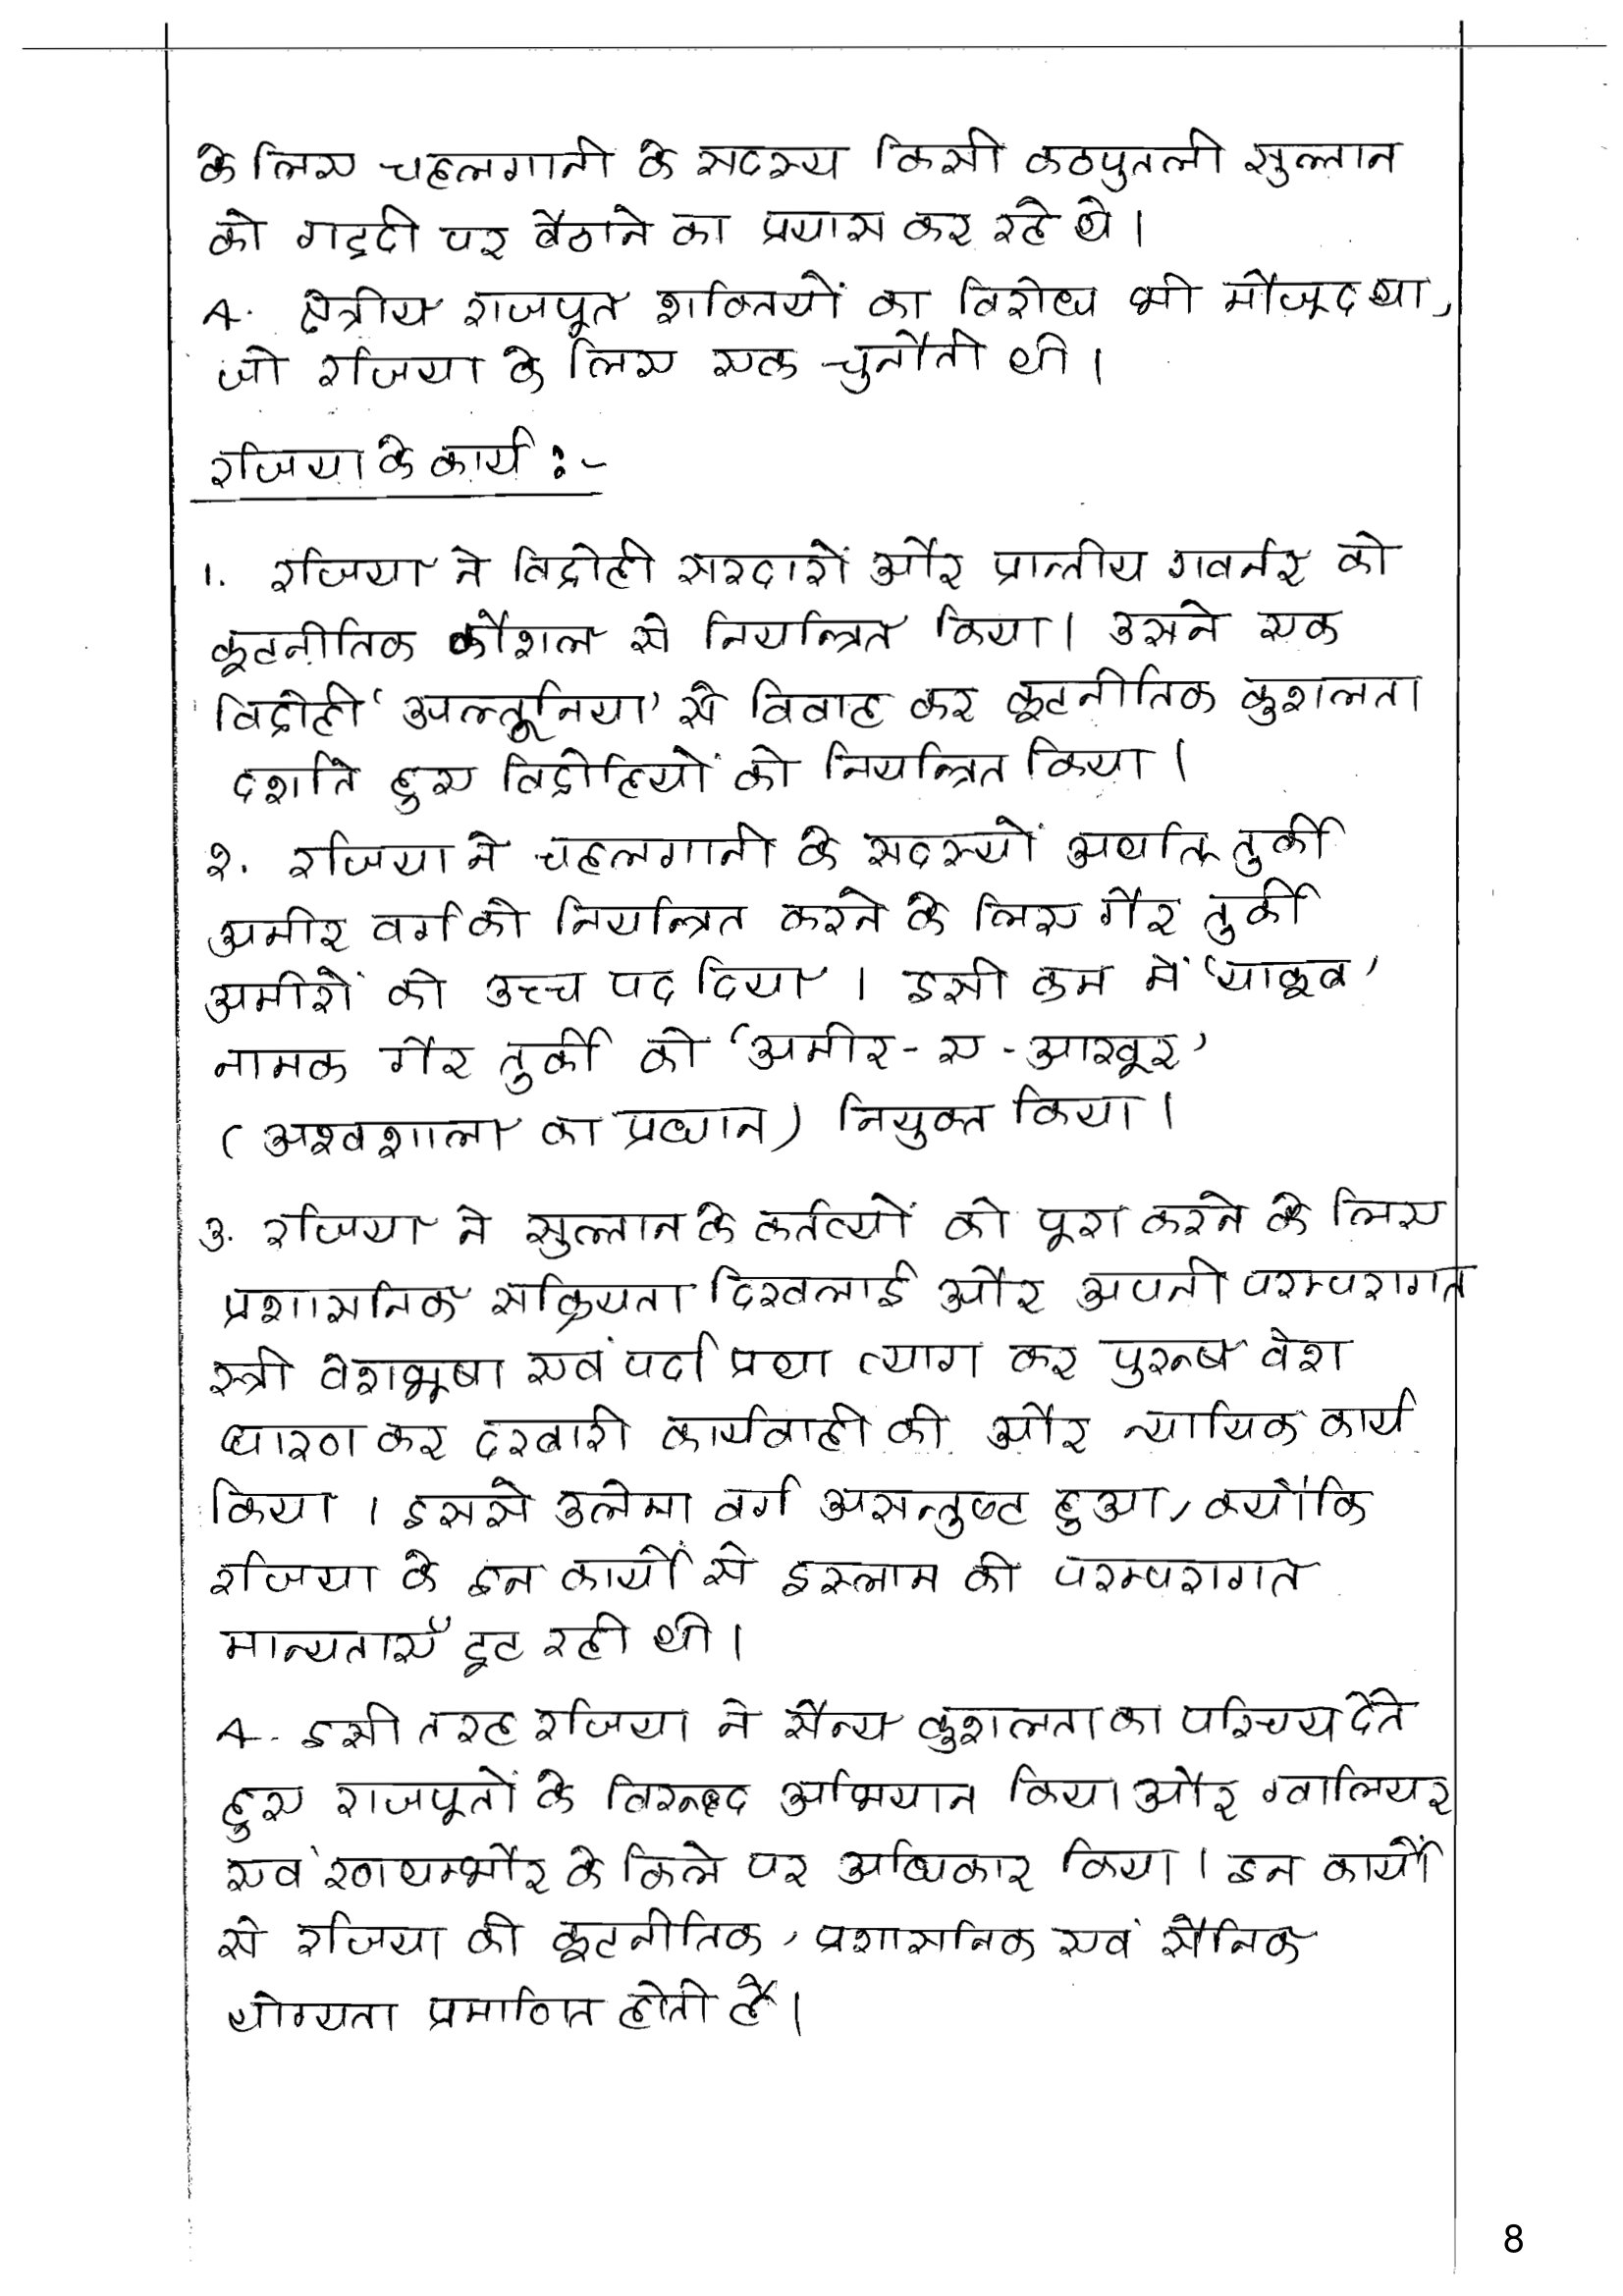 के लिए चहलगानी के सदस्य किसी कठपुतली सुल्तान
को गद्दी पर बैठाने का प्रयास कर रहे थे।
4. क्षेत्रीय राजपूत शक्तियों का विरोध भी मौजूद था,
जो रजिया के लिए एक चुनौती थी।
रजिया के कार्य :-
1. रजिया ने विद्रोही सरदारों और प्रान्तीय गवर्नर को
कूटनीतिक कौशल से नियन्त्रित किया। उसने एक
विद्रोही 'अल्तूनिया' से विवाह कर कूटनीतिक कुशलता
दर्शाते हुए विद्रोहियों को नियन्त्रित किया।
२. रजिया ने चहलगानी के सदस्यों अर्थात तुर्की
अमीर वर्ग को नियन्त्रित करने के लिए गैर तुर्की
अमीरों को उच्च पद दिया। इसी क्रम में 'याकूब'
नामक गैर तुर्की को 'अमीर-ए-आखूर'
(अश्वशाला का प्रधान) नियुक्त किया।
3. रजिया ने सुल्तान के कर्तव्यों को पूरा करने के लिए
प्रशासनिक सक्रियता दिखलाई और अपनी परम्परागत
स्त्री वेशभूषा एवं पर्दा प्रथा त्याग कर पुरूष वेश
धारण कर दरबारी कार्यवाही की और न्यायिक कार्य
किया। इससे उलेमा वर्ग असन्तुष्ट हुआ, क्योंकि
रजिया के इन कार्यों से इस्लाम की परम्परागत
मान्यताएँ टूट रही थी।
4. इसी तरह रजिया ने सैन्य कुशलता का परिचय देते
हुए राजपूतों के विरूद्ध अभियान किया और ग्वालियर
एवं रणथम्भौर के किले पर अधिकार किया। इन कार्यों
से रजिया की कूटनीतिक, प्रशासनिक एवं सैनिक
योग्यता प्रमाणित होती है।
8